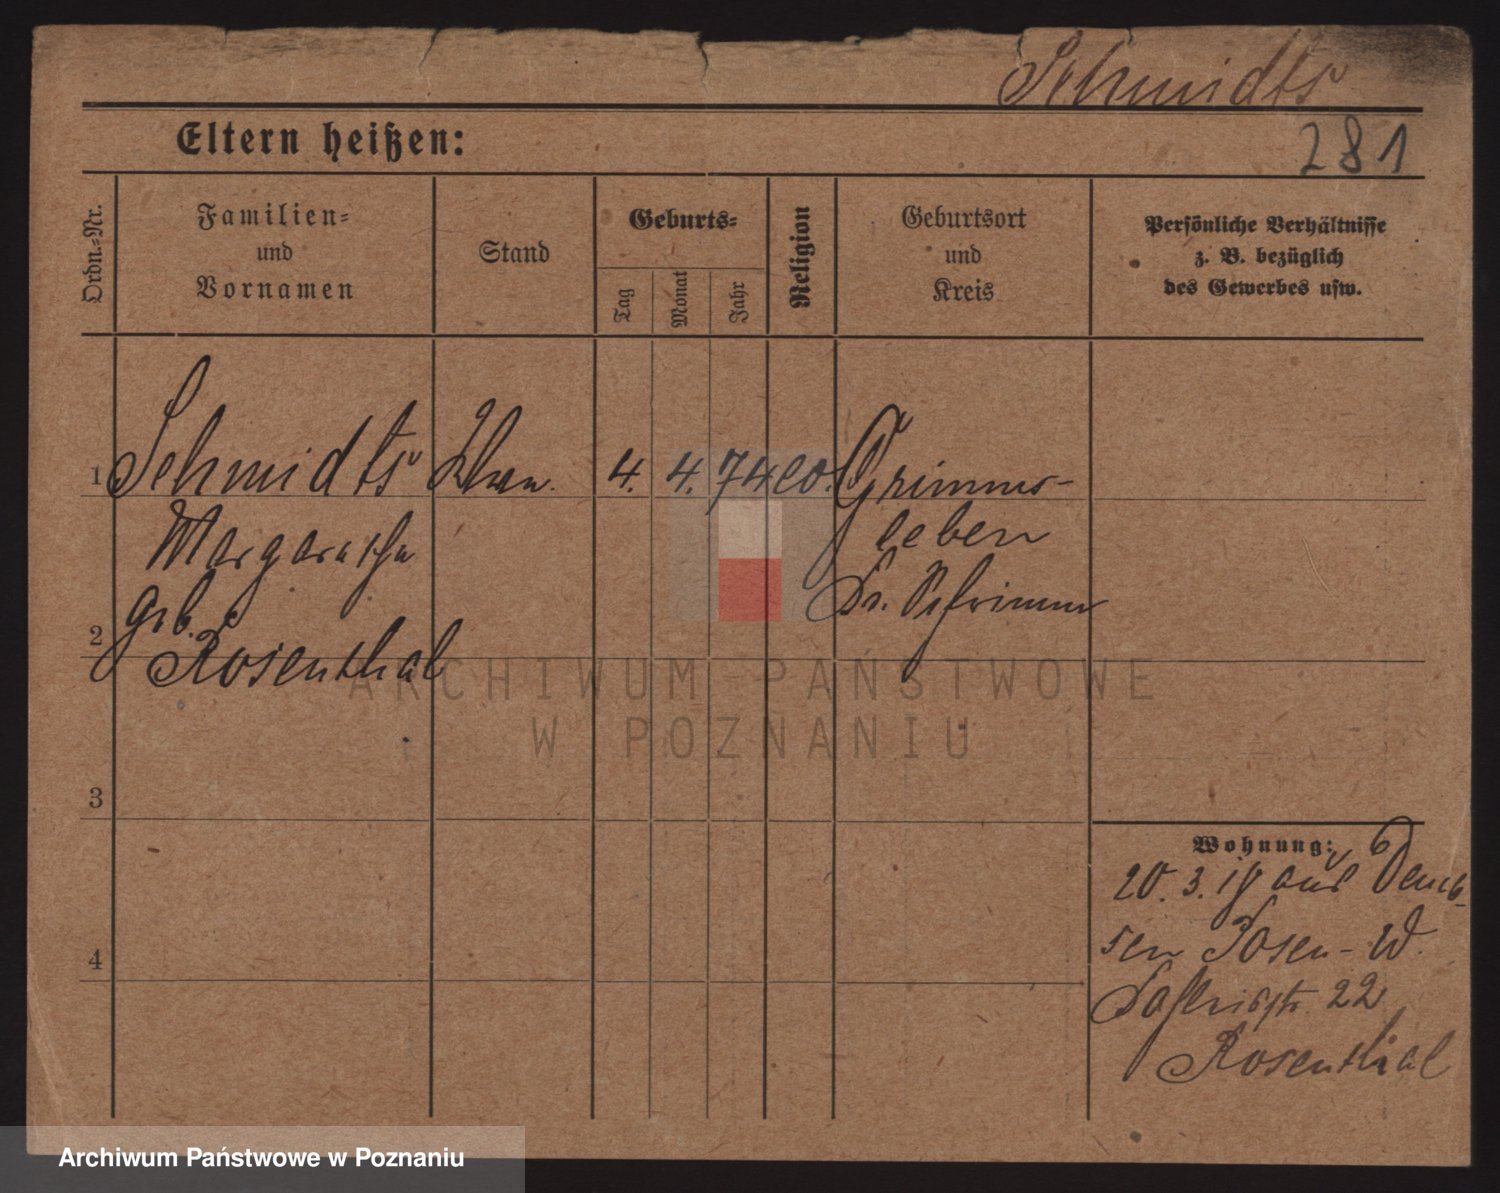 Schmidts
281
Eltern heißen:
Ordn.-Nr.
Familien-
und
Vornamen
Stand
Geburts-
Tag
Monat
Jahr
Religion
Geburtsort
und
Kreis
Persönliche Verhältnisse
z. B. bezüglich
des Gewerbes usw.
1 Schmidts 4. 4. 74 ev. Grimmers-
leben
Margarethe
geb.
2
Rosenthal
ARCHIWUM PAŃSTWOWE
W POZNANIU
3
Wohnung:
20. 3. 19 aus Demb-
sen Posen-W.
4
22
Rosenthal
Archiwum Państwowe w Poznaniu